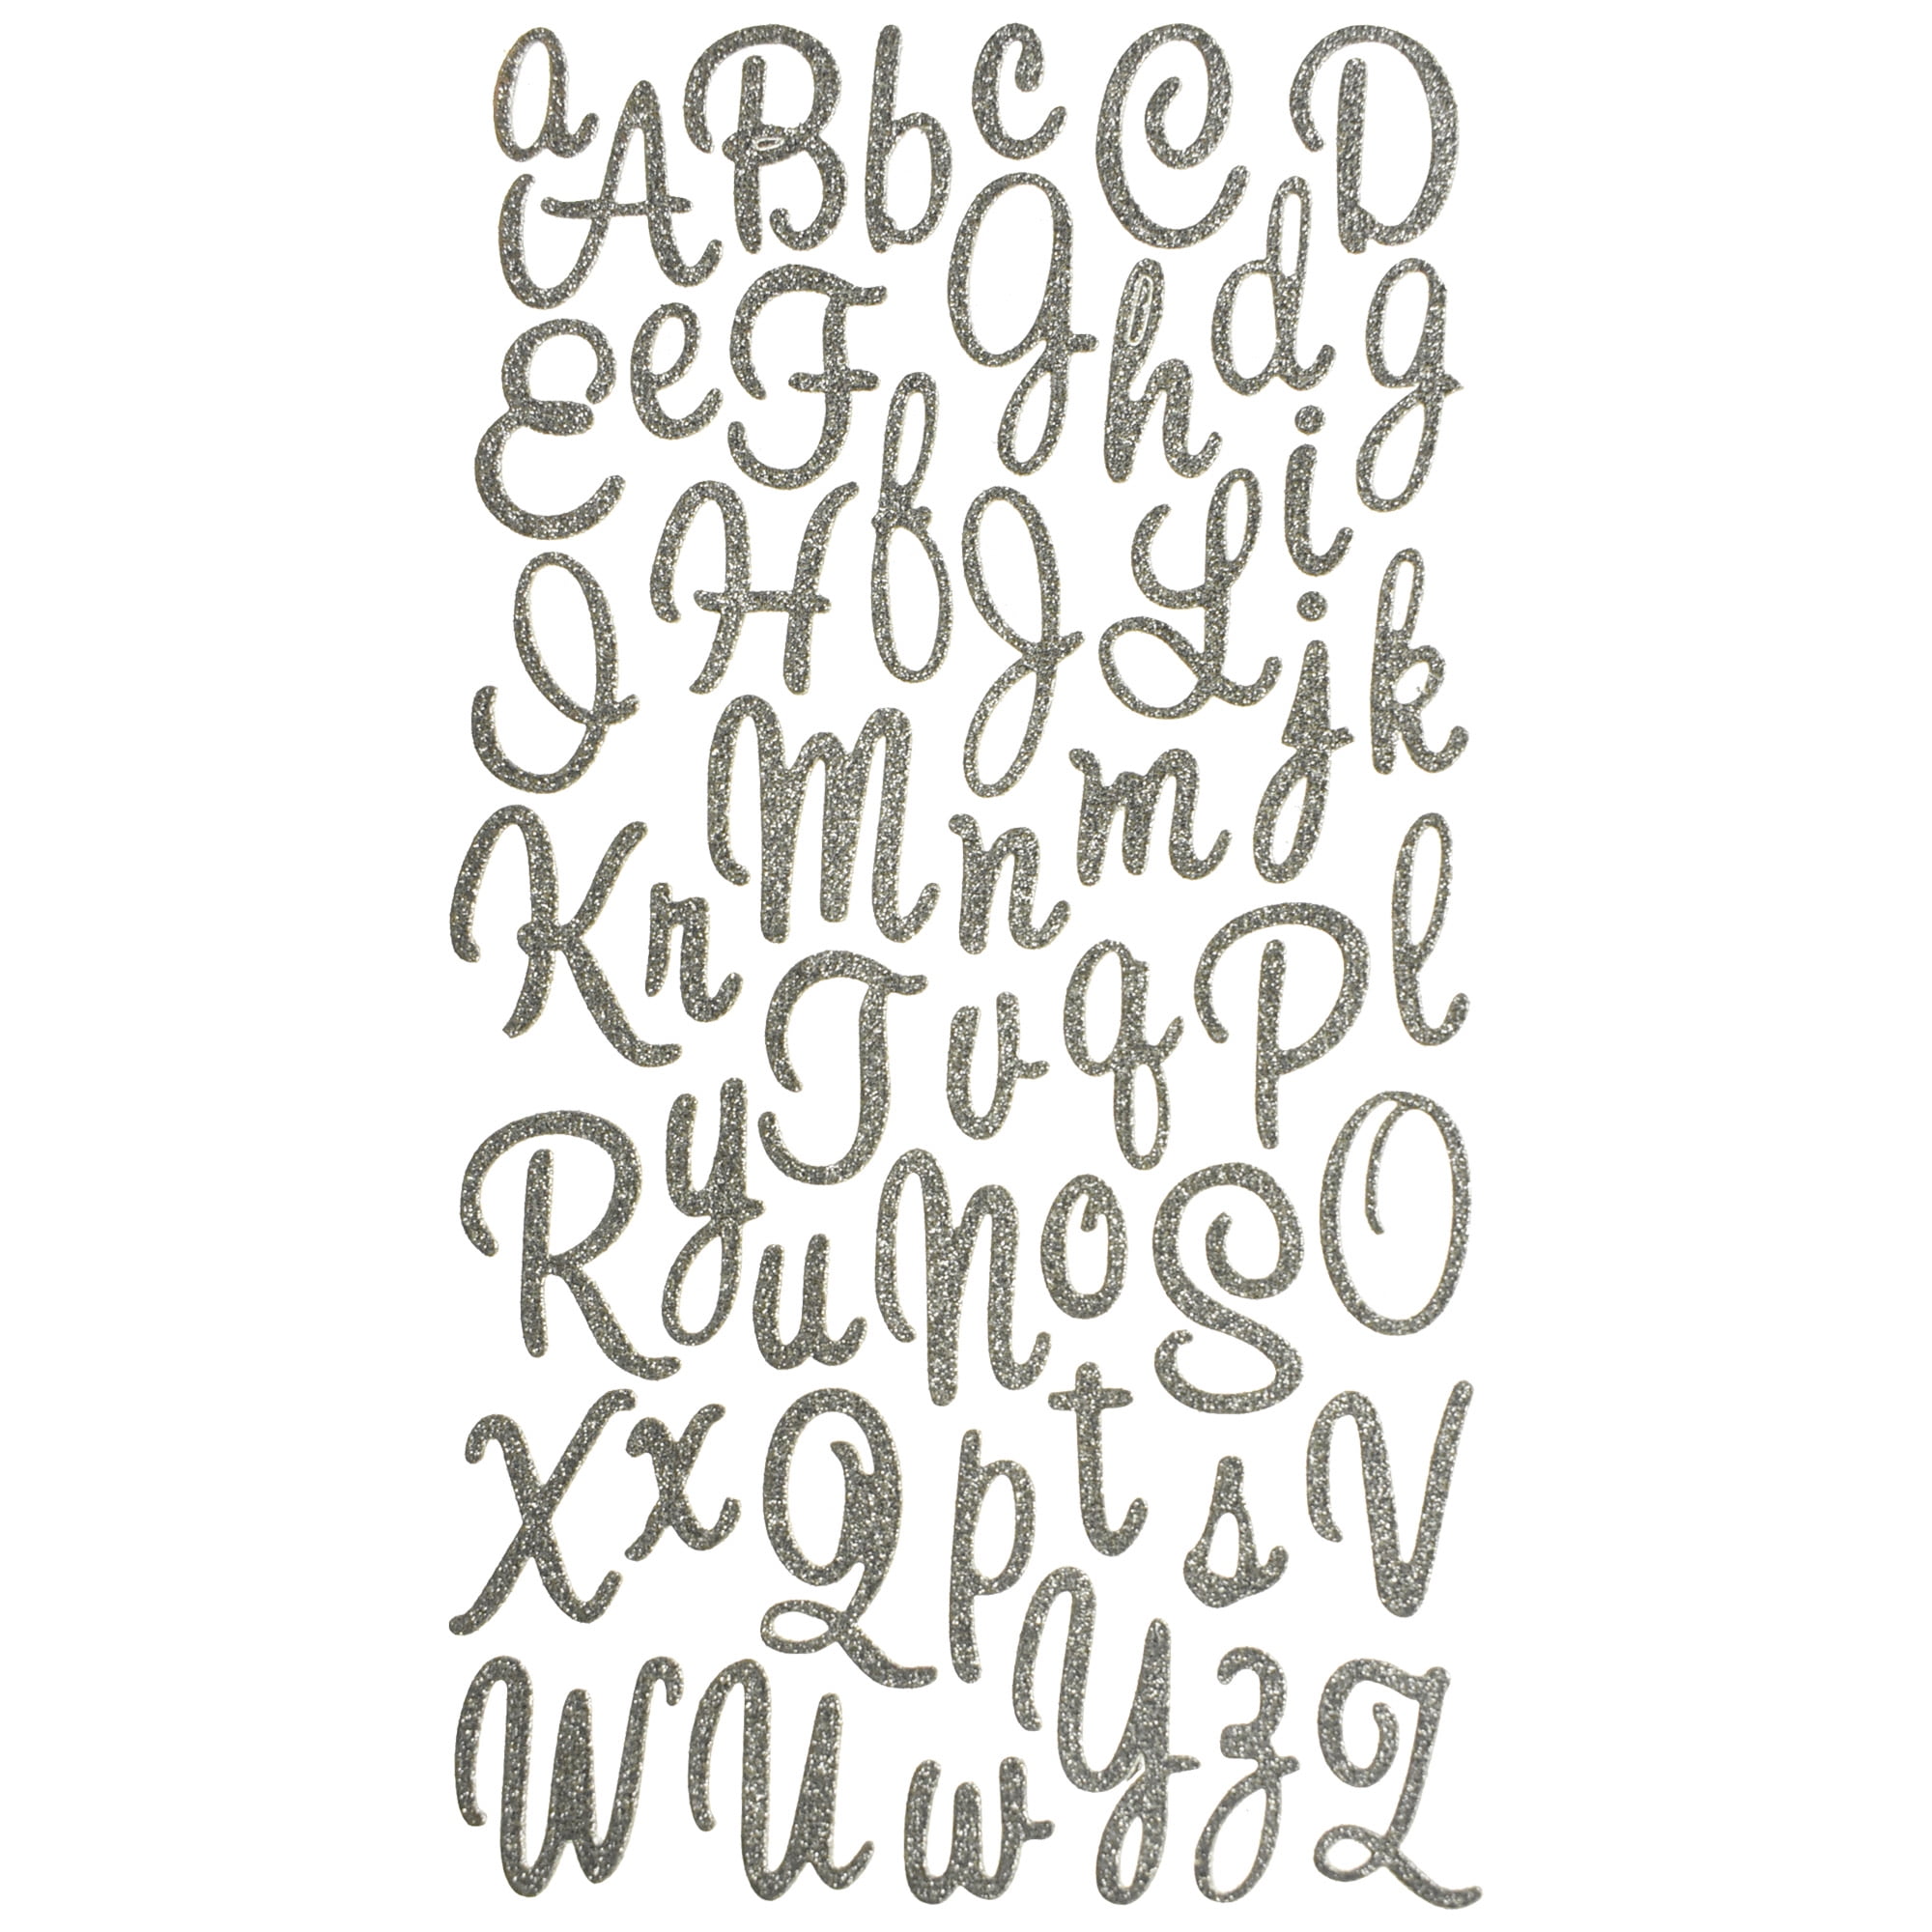 a A B b c C D
E e F G h d g
I H f J L i j k
K r M n m l
R y T v q P
u N o S O
X x Q p t s V
W U w Y z Z